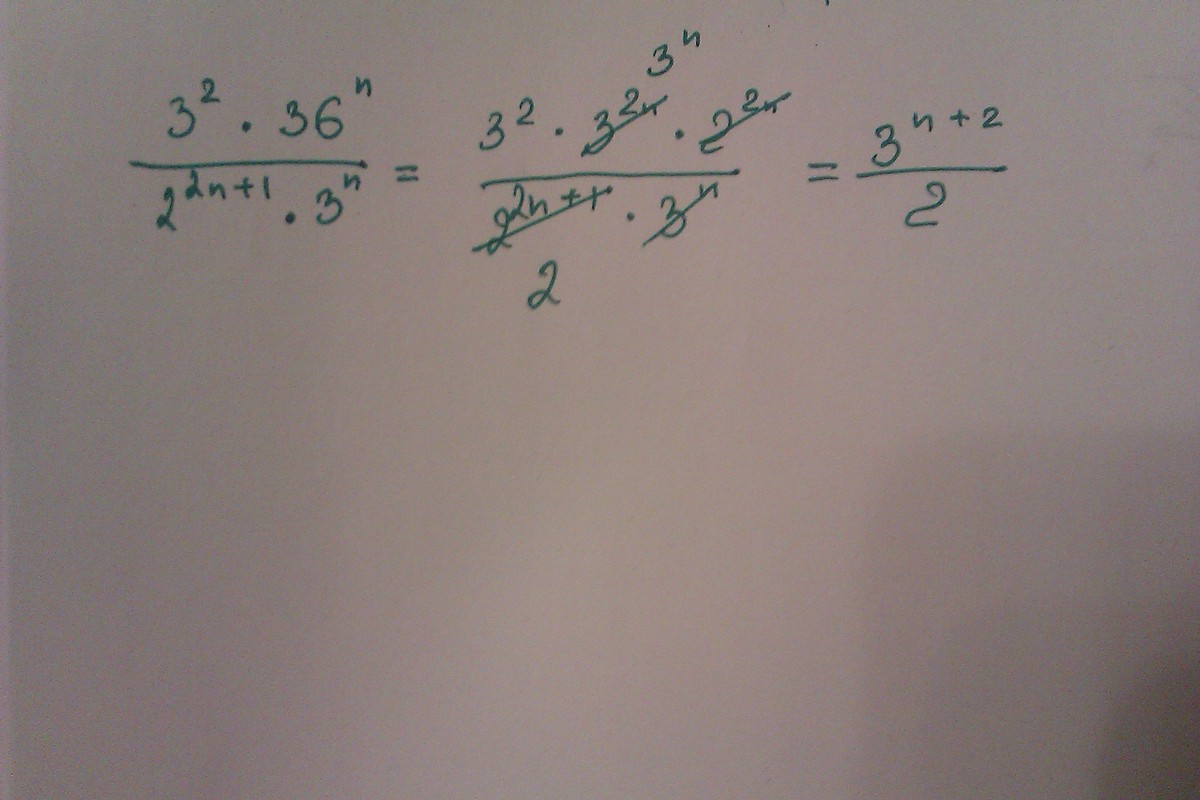 \frac{3^2 \cdot 36^n}{2^{2n+1} \cdot 3^n} = \frac{3^2 \cdot \cancel{3^{2n}}^{3^n} \cdot \cancel{2^{2n}}}{\cancel{2^{2n+1}}_{2} \cdot \cancel{3^n}} = \frac{3^{n+2}}{2}